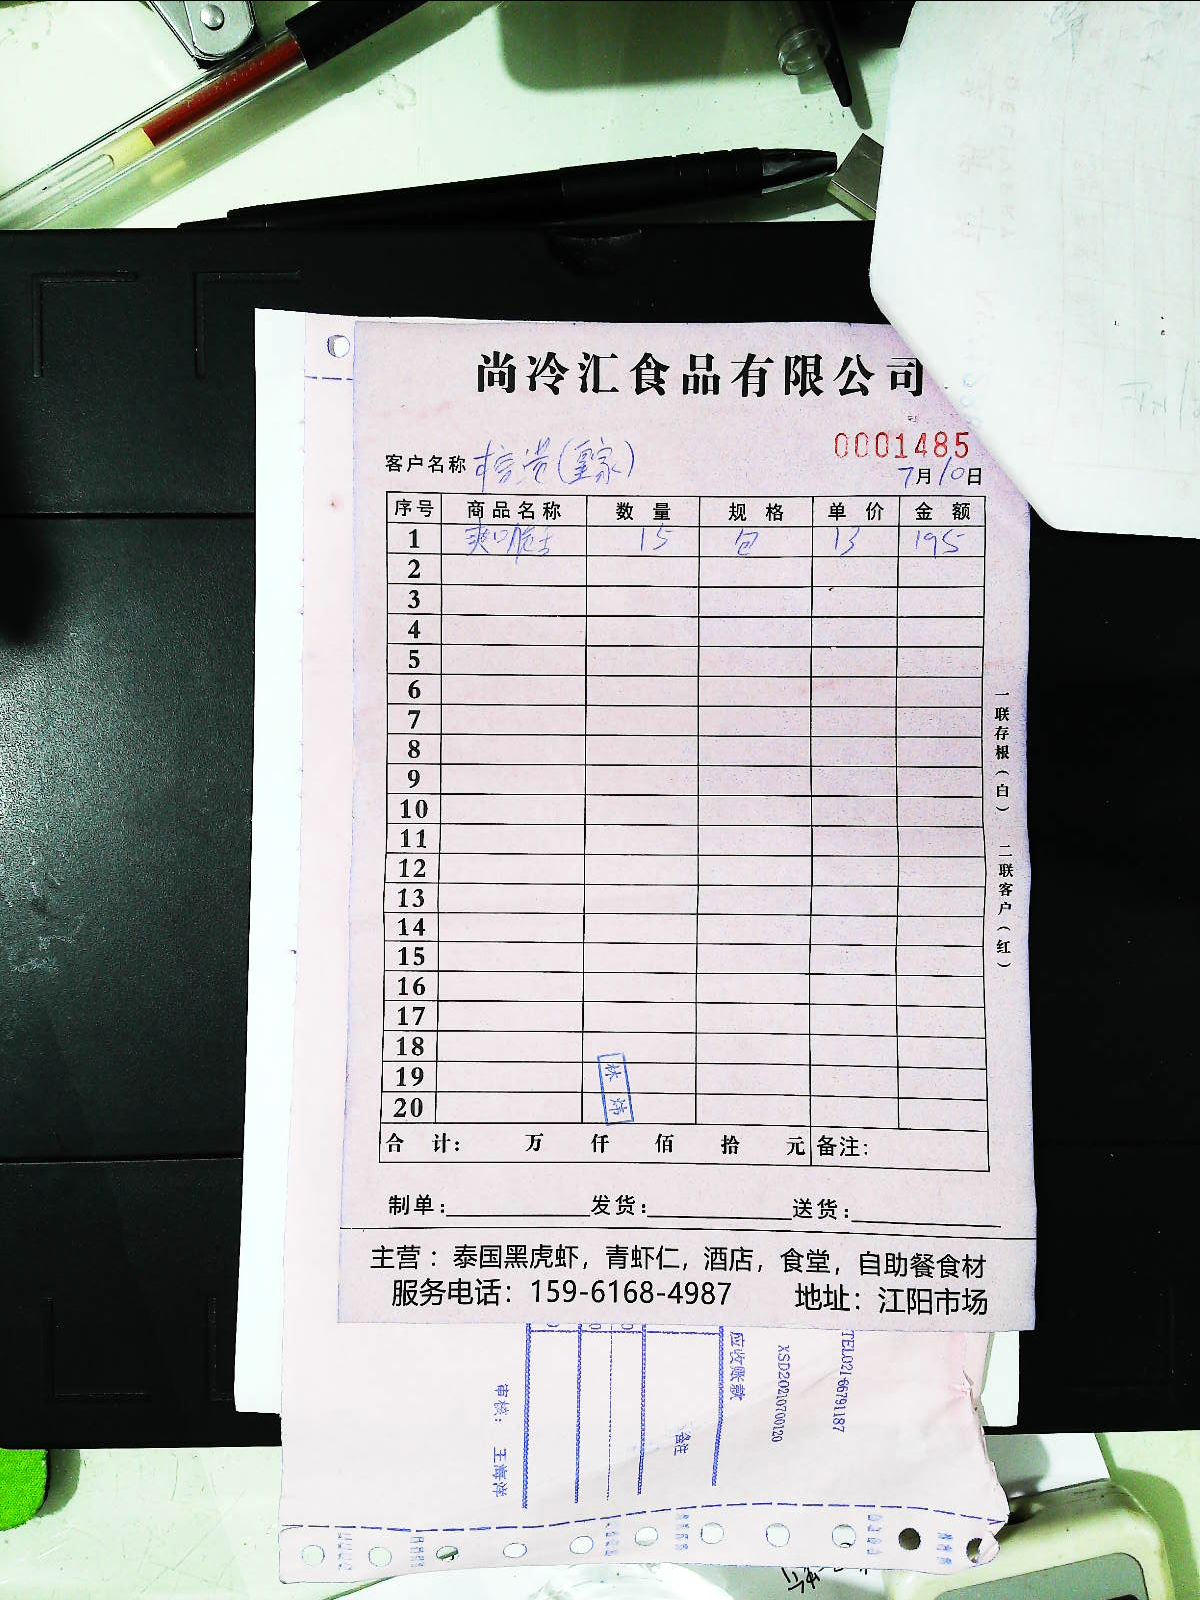 尚冷汇食品有限公司
0001485
客户名称
7月10日
序号 商品名称 数量 规格 单价 金额
1 爽口脆 15 包 13 195
2
3
4
5
6
7
8
9
10
11
12
13
14
15
16
17
18
19
20
林
合计： 万 仟 佰 拾 元 备注：
制单： 发货： 送货：
主营：泰国黑虎虾，青虾仁，酒店，食堂，自助餐食材
服务电话：159-6168-4987 地址：江阳市场
一联存根（白） 二联客户（红）
TEL021-66791187
XSD20210700120
应收账款
备注
审核： 王海洋